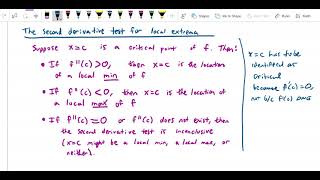 The second derivative test for local extrema
Suppose x=c is a critical point of f. Then:
• If f''(c)>0, then x=c is the location
of a local min of f
• If f''(c)<0, then x=c is the location of
a local max of f
• If f''(c)=0 or f''(c) does not exist, then
the second derivative test is inconclusive
(x=c might be a local min, a local max, or
neither).
x=c has to be
identified as
critical
because f'(c)=0,
not b/c f'(c) DNE